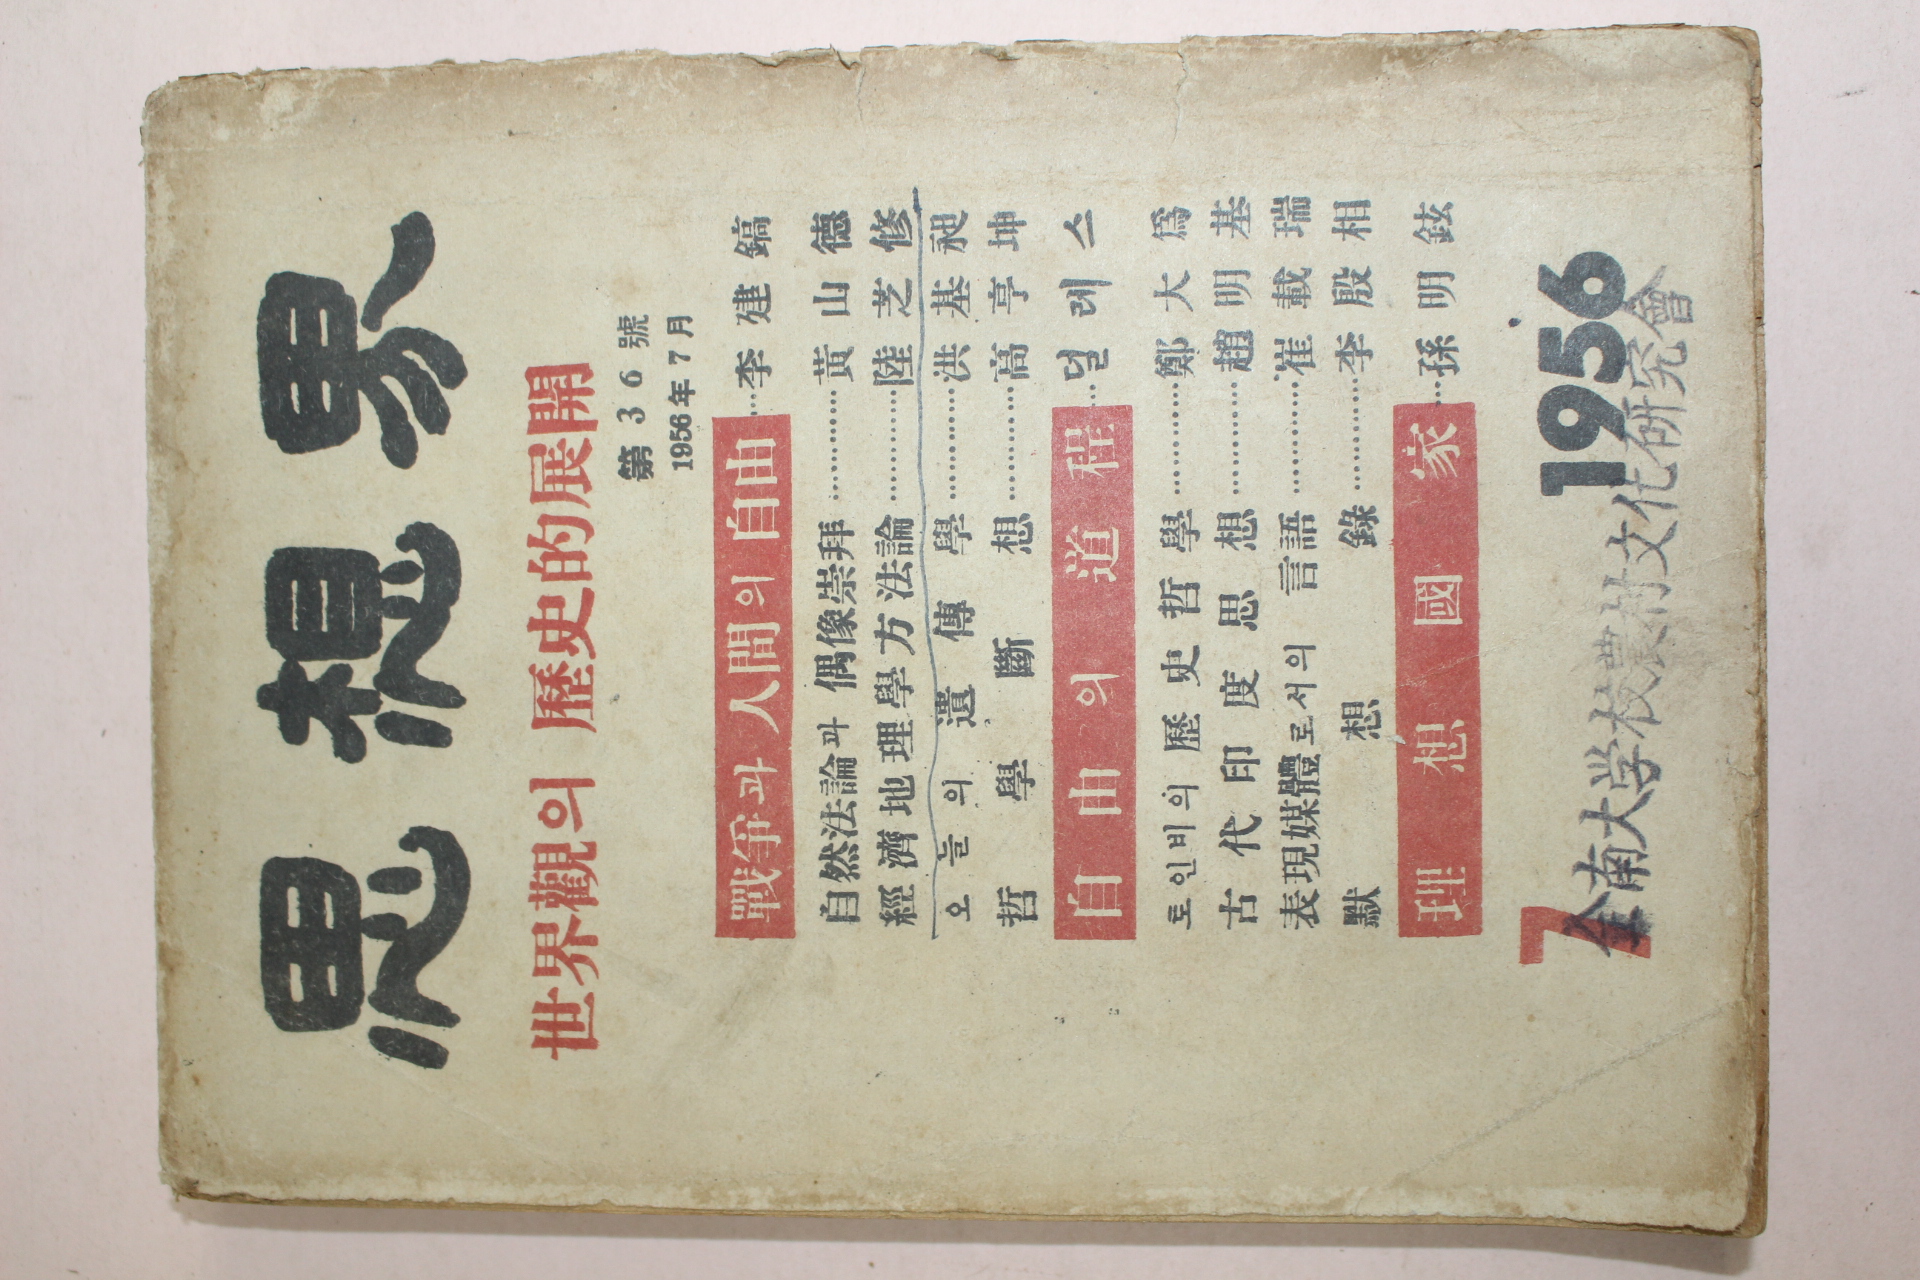 思想界
世界觀의 歷史的展開
第36號
1956年7月
戰爭과 人間의 自由…李建鎬
自然法論과 偶像崇拜…………黃山德
經濟地理學方法論…………陸芝修
오늘의 遺傳學…………洪基昶
哲學斷想…………高亨坤
自由의 道程…덜레스
토인비의 歷史哲學…………鄭大爲
古代印度思想…………趙明基
表現媒體로서의 言語…………崔載瑞
默想錄…………李殷相
理想國家…孫明鉉
7 1956
全南大学校農村文化研究會